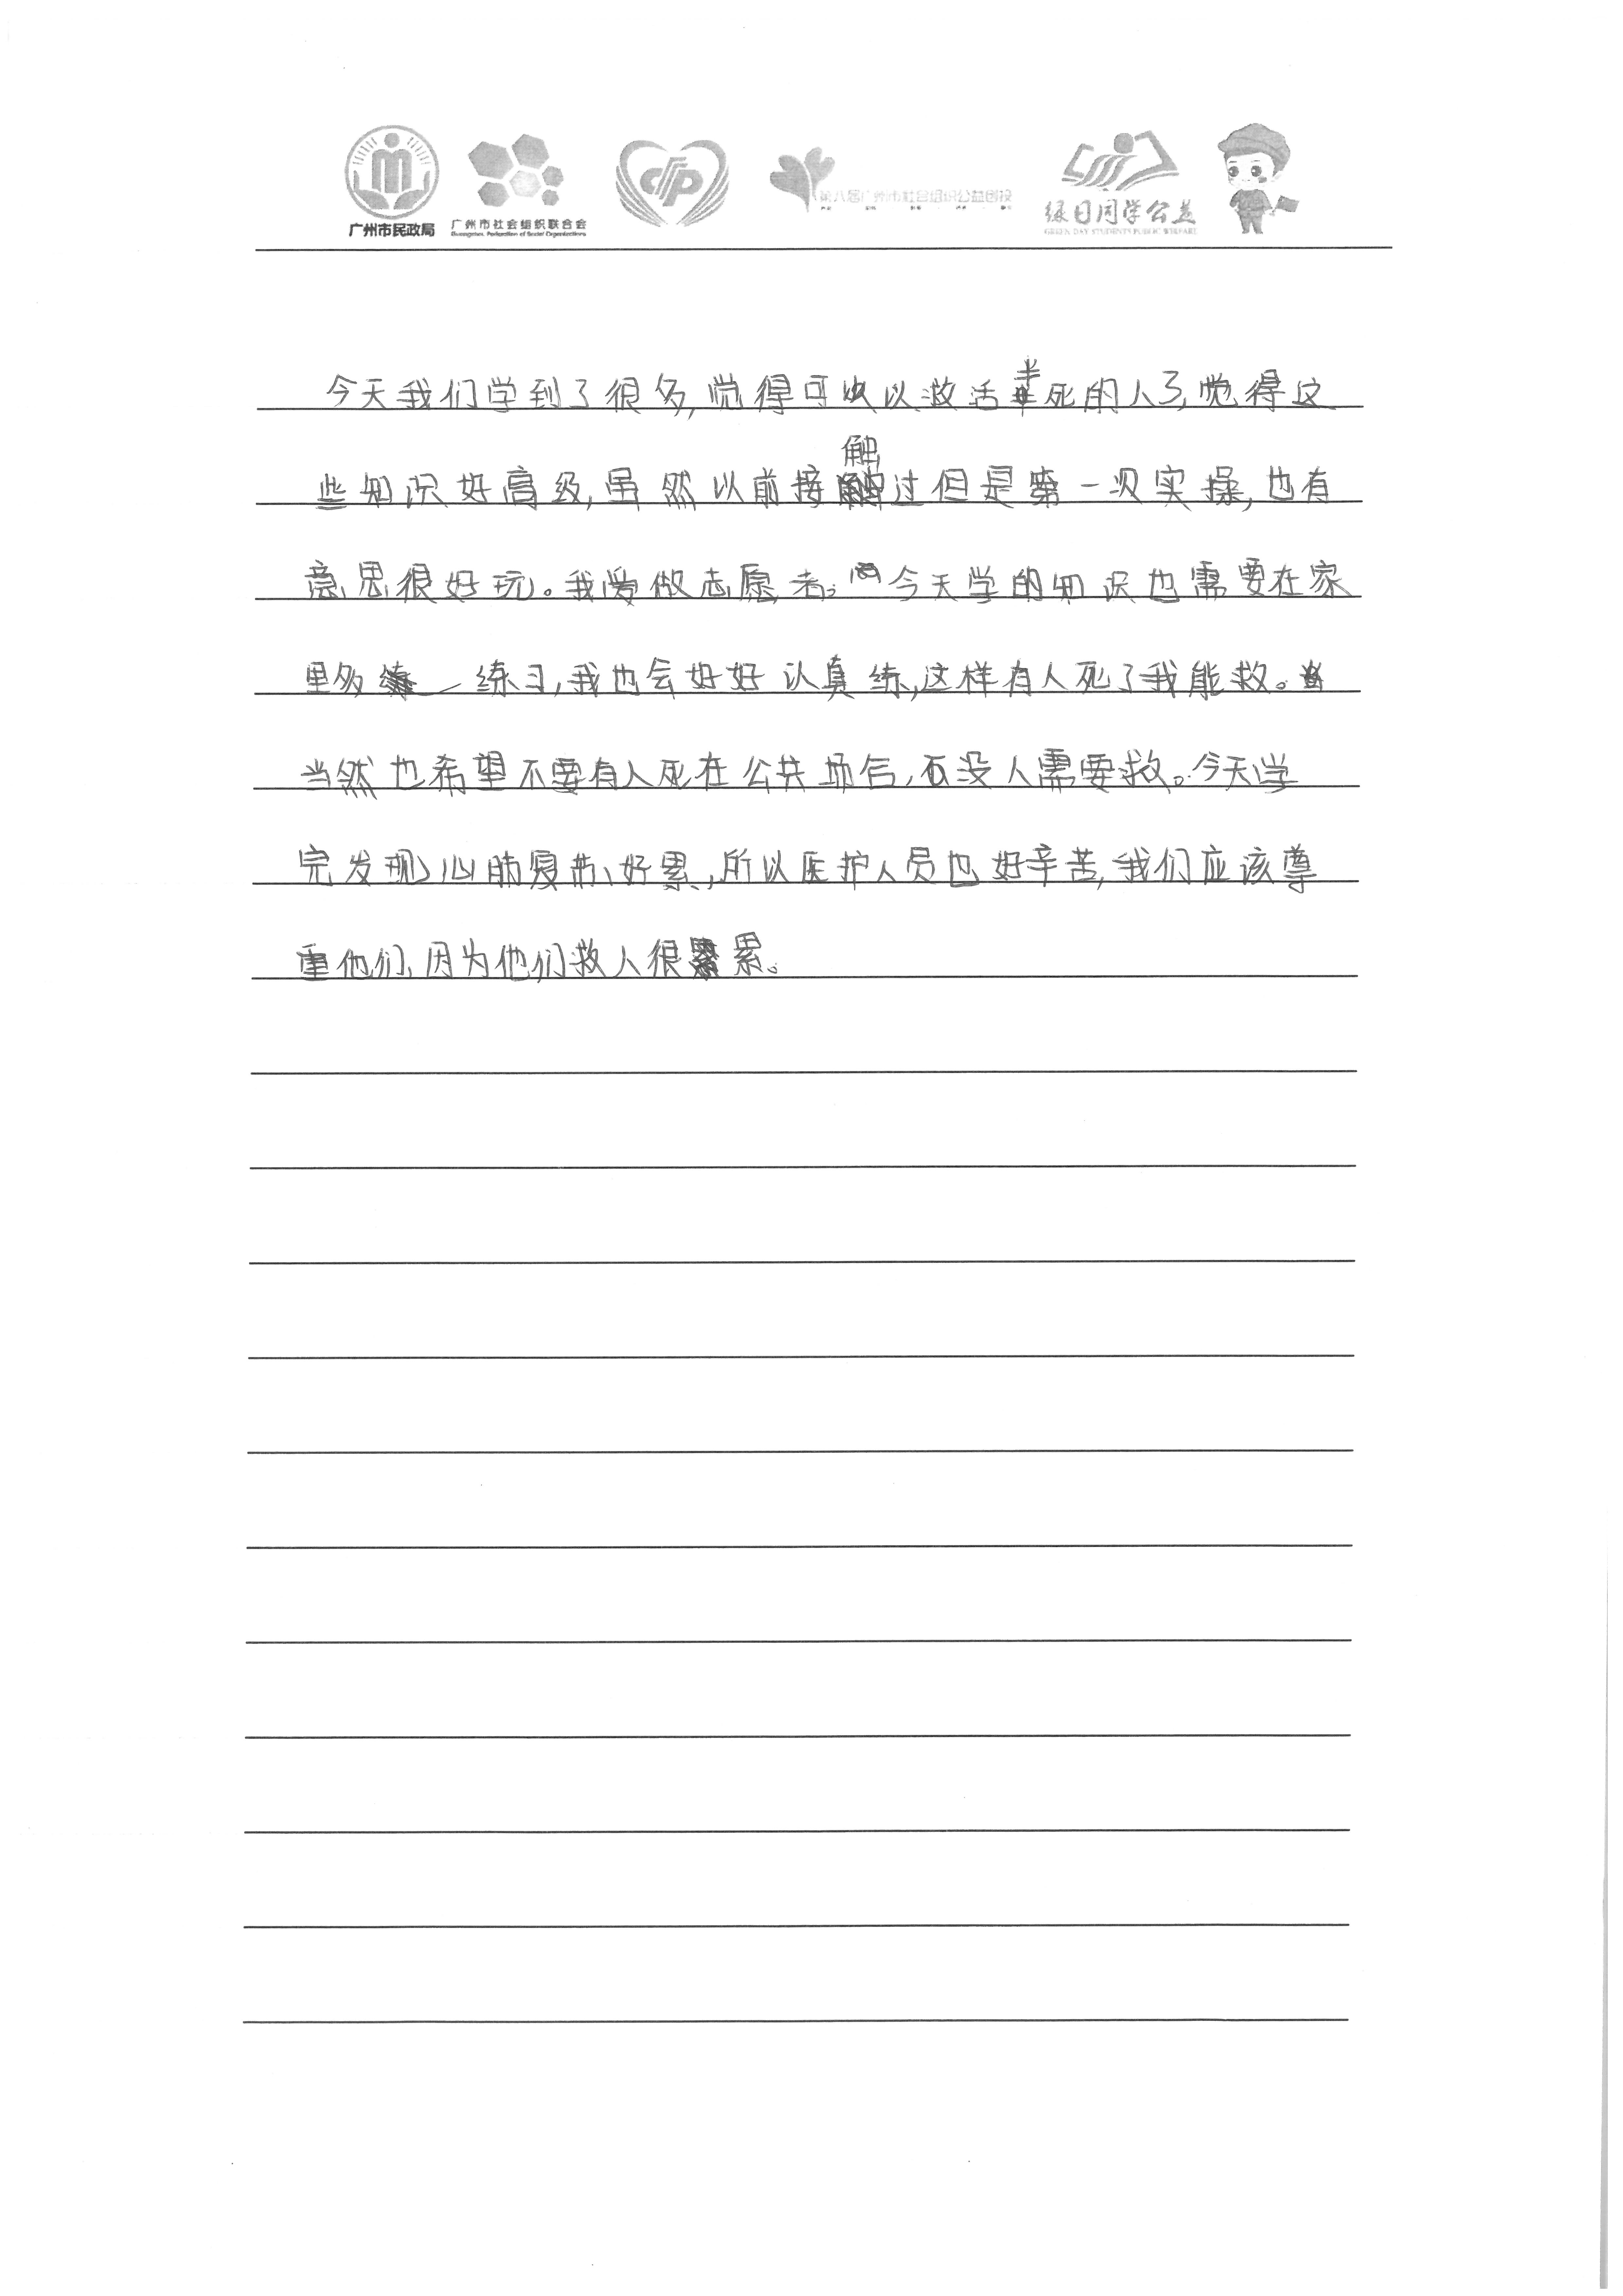 广州市民政局
广州市社会组织联合会
Guangzhou Federation of Social Organizations
第八届广州市社会组织公益创投
绿日同学公益
GREEN DAY STUDENTS PUBLIC WELFARE
今天我们学到了很多,觉得可以以救活半死的人了,觉得这
些知识好高级,虽然以前接触过但是第一次实操,也有
意思很好玩。我爱做志愿者。今天学的知识也需要在家
里多练习,我也会好好认真练,这样有人死了我能救。
当然也希望不要有人死在公共场合,没人需要救。今天学
完发现心肺复苏好累,所以医护人员也好辛苦,我们应该尊
重他们,因为他们救人很累。